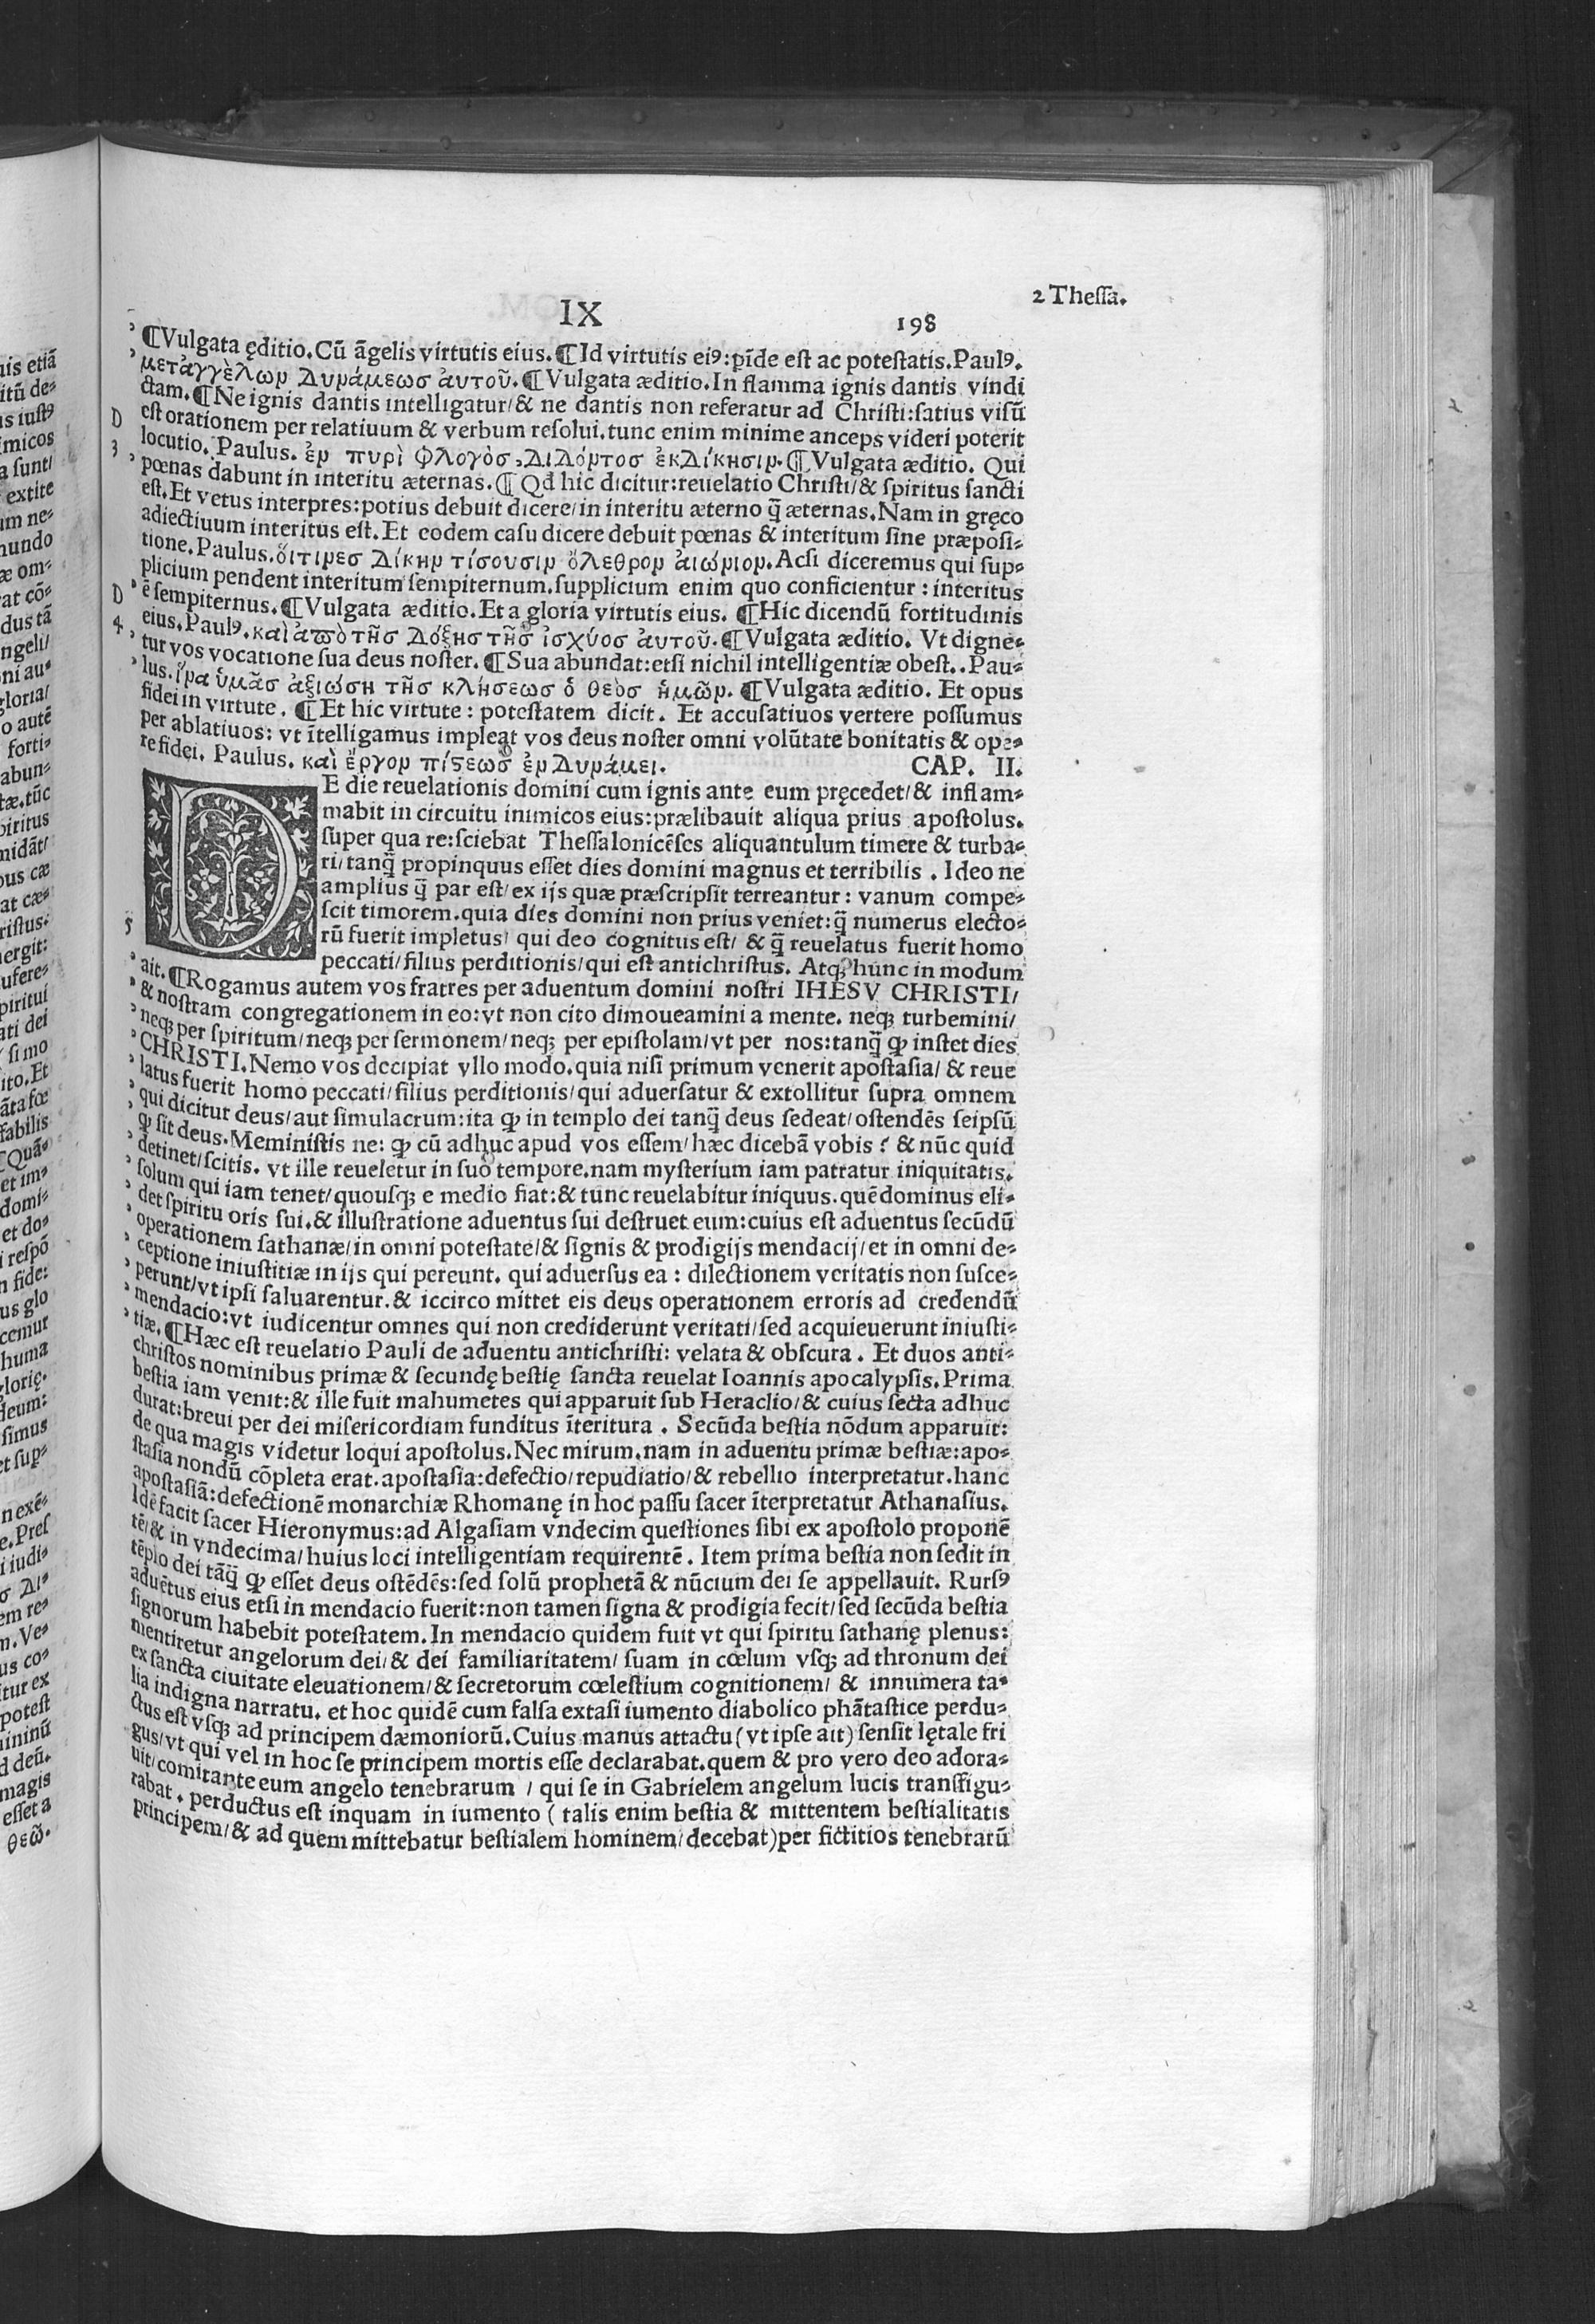 IX 198 2 Thessa.
¶Vulgata ęditio. Cũ ãgelis virtutis eius. ¶Id virtutis eiꝰ: p̃ĩde est ac potestatis. Paulꝰ.
μετἀγγὲλων Δυνάμεωσ ἀυτοῦ. ¶Vulgata æditio. In flamma ignis dantis vindi
ctam. ¶Ne ignis dantis intelligatur/ & ne dantis non referatur ad Christi: satius visũ
D est orationem per relatiuum & verbum resolui. tunc enim minime anceps videri poterit
3 locutio. Paulus. ἐν πυρὶ φλογὸσ, Διλόντοσ ἐκΔίκησιν. ¶Vulgata æditio. Qui
pœnas dabunt in interitu æternas. ¶Qđ hic dicitur: reuelatio Christi/ & spiritus sancti
est. Et vetus interpres: potius debuit dicere/ in interitu æterno q̃ æternas. Nam in gręco
adiectiuum interitus est. Et eodem casu dicere debuit pœnas & interitum sine præposi-
tione. Paulus. ὅιτινεσ Δίκην τίσουσιν ὄλεθρον ἀιώνιον. Acsi diceremus qui sup-
plicium pendent interitum sempiternum. supplicium enim quo conficientur: interitus
D ẽ sempiternus. ¶Vulgata æditio. Et a gloria virtutis eius. ¶Hic dicendũ fortitudinis
4 eius. Paulꝰ. καὶ ἀπὸ τῆσ Δόξησ τῆσ ἰσχύοσ ἀυτοῦ. ¶Vulgata æditio. Vt digne-
tur vos vocatione sua deus noster. ¶Sua abundat: etsi nichil intelligentiæ obest.. Pau-
lus. ἵνα ὑμᾶσ ἀξιώση τῆσ κλήσεωσ ὁ θεὸσ ἡμῶν. ¶Vulgata æditio. Et opus
fidei in virtute. ¶Et hic virtute: potestatem dicit. Et accusatiuos vertere possumus
per ablatiuos: vt ĩtelligamus impleat vos deus noster omni volũtate bonitatis & ope-
re fidei. Paulus. καὶ ἔργον πίϛεωσ ἐν Δυνάμει. CAP. II.
DE die reuelationis domini cum ignis ante eum pręcedet/ & inflam-
mabit in circuitu inimicos eius: prælibauit aliqua prius apostolus.
super qua re: sciebat Thessalonicẽses aliquantulum timere & turba-
ri/ tanq̃ propinquus esset dies domini magnus et terribilis. Ideo ne
amplius q̃ par est/ ex ijs quæ præscripsit terreantur: vanum compe-
scit timorem. quia dies domini non prius veniet: q̃ numerus electo-
5 rũ fuerit impletus/ qui deo cognitus est/ & q̃ reuelatus fuerit homo
peccati/ filius perditionis/ qui est antichristus. Atqꝫ hunc in modum
ait. ¶Rogamus autem vos fratres per aduentum domini nostri IHESV CHRISTI/
& nostram congregationem in eo: vt non cito dimoueamini a mente. neqꝫ turbemini/
neqꝫ per spiritum/ neqꝫ per sermonem/ neqꝫ per epistolam/ vt per nos: tanq̃ ꝙ instet dies
CHRISTI. Nemo vos decipiat vllo modo. quia nisi primum venerit apostasia/ & reue
latus fuerit homo peccati/ filius perditionis/ qui aduersatur & extollitur supra omnem
qui dicitur deus/ aut simulacrum: ita ꝙ in templo dei tanq̃ deus sedeat/ ostendẽs seipsũ
ꝙ sit deus. Meministis ne: ꝙ cũ adhuc apud vos essem/ hæc dicebã vobis? & nũc quid
detinet/ scitis. vt ille reueletur in suo tempore. nam mysterium iam patratur iniquitatis.
solum qui iam tenet/ quousqꝫ e medio fiat: & tunc reuelabitur iniquus. quẽ dominus eli-
det spiritu oris sui. & illustratione aduentus sui destruet eum: cuius est aduentus secũdũ
operationem sathanæ/ in omni potestate/ & signis & prodigijs mendacij/ et in omni de-
ceptione iniustitiæ in ijs qui pereunt. qui aduersus ea: dilectionem veritatis non susce-
perunt/ vt ipsi saluarentur. & iccirco mittet eis deus operationem erroris ad credendũ
mendacio: vt iudicentur omnes qui non crediderunt veritati/ sed acquieuerunt iniusti-
tiæ. ¶Hæc est reuelatio Pauli de aduentu antichristi: velata & obscura. Et duos anti-
christos nominibus primæ & secundę bestię sancta reuelat Ioannis apocalypsis. Prima
bestia iam venit: & ille fuit mahumetes qui apparuit sub Heraclio/ & cuius secta adhuc
durat: breui per dei misericordiam funditus ĩteritura. Secũda bestia nõdum apparuit:
de qua magis videtur loqui apostolus. Nec mirum. nam in aduentu primæ bestiæ: apo-
stasia nondũ cõpleta erat. apostasia: defectio/ repudiatio/ & rebellio interpretatur. hanc
apostasiã: defectionẽ monarchiæ Rhomanę in hoc passu sacer ĩterpretatur Athanasius.
Idẽ facit sacer Hieronymus: ad Algasiam vndecim questiones sibi ex apostolo proponẽ
tẽ/ & in vndecima/ huius loci intelligentiam requirentẽ. Item prima bestia non sedit in
tẽplo dei tãq̃ ꝙ esset deus ostẽdẽs: sed solũ prophetã & nũcium dei se appellauit. Rursꝰ
aduẽtus eius etsi in mendacio fuerit: non tamen signa & prodigia fecit/ sed secũda bestia
signorum habebit potestatem. In mendacio quidem fuit vt qui spiritu sathanę plenus:
mentiretur angelorum dei/ & dei familiaritatem/ suam in cœlum vsqꝫ ad thronum dei
ex sancta ciuitate eleuationem/ & secretorum cœlestium cognitionem/ & innumera ta-
lia indigna narratu. et hoc quidẽ cum falsa extasi iumento diabolico phãtastice perdu-
ctus est vsqꝫ ad principem dæmoniorũ. Cuius manus attactu (vt ipse ait) sensit lętale fri
gus/ vt qui vel in hoc se principem mortis esse declarabat. quem & pro vero deo adora-
uit/ comitante eum angelo tenebrarum / qui se in Gabrielem angelum lucis transfigu-
rabat. perductus est inquam in iumento ( talis enim bestia & mittentem bestialitatis
principem/ & ad quem mittebatur bestialem hominem/ decebat) per fictitios tenebrarũ